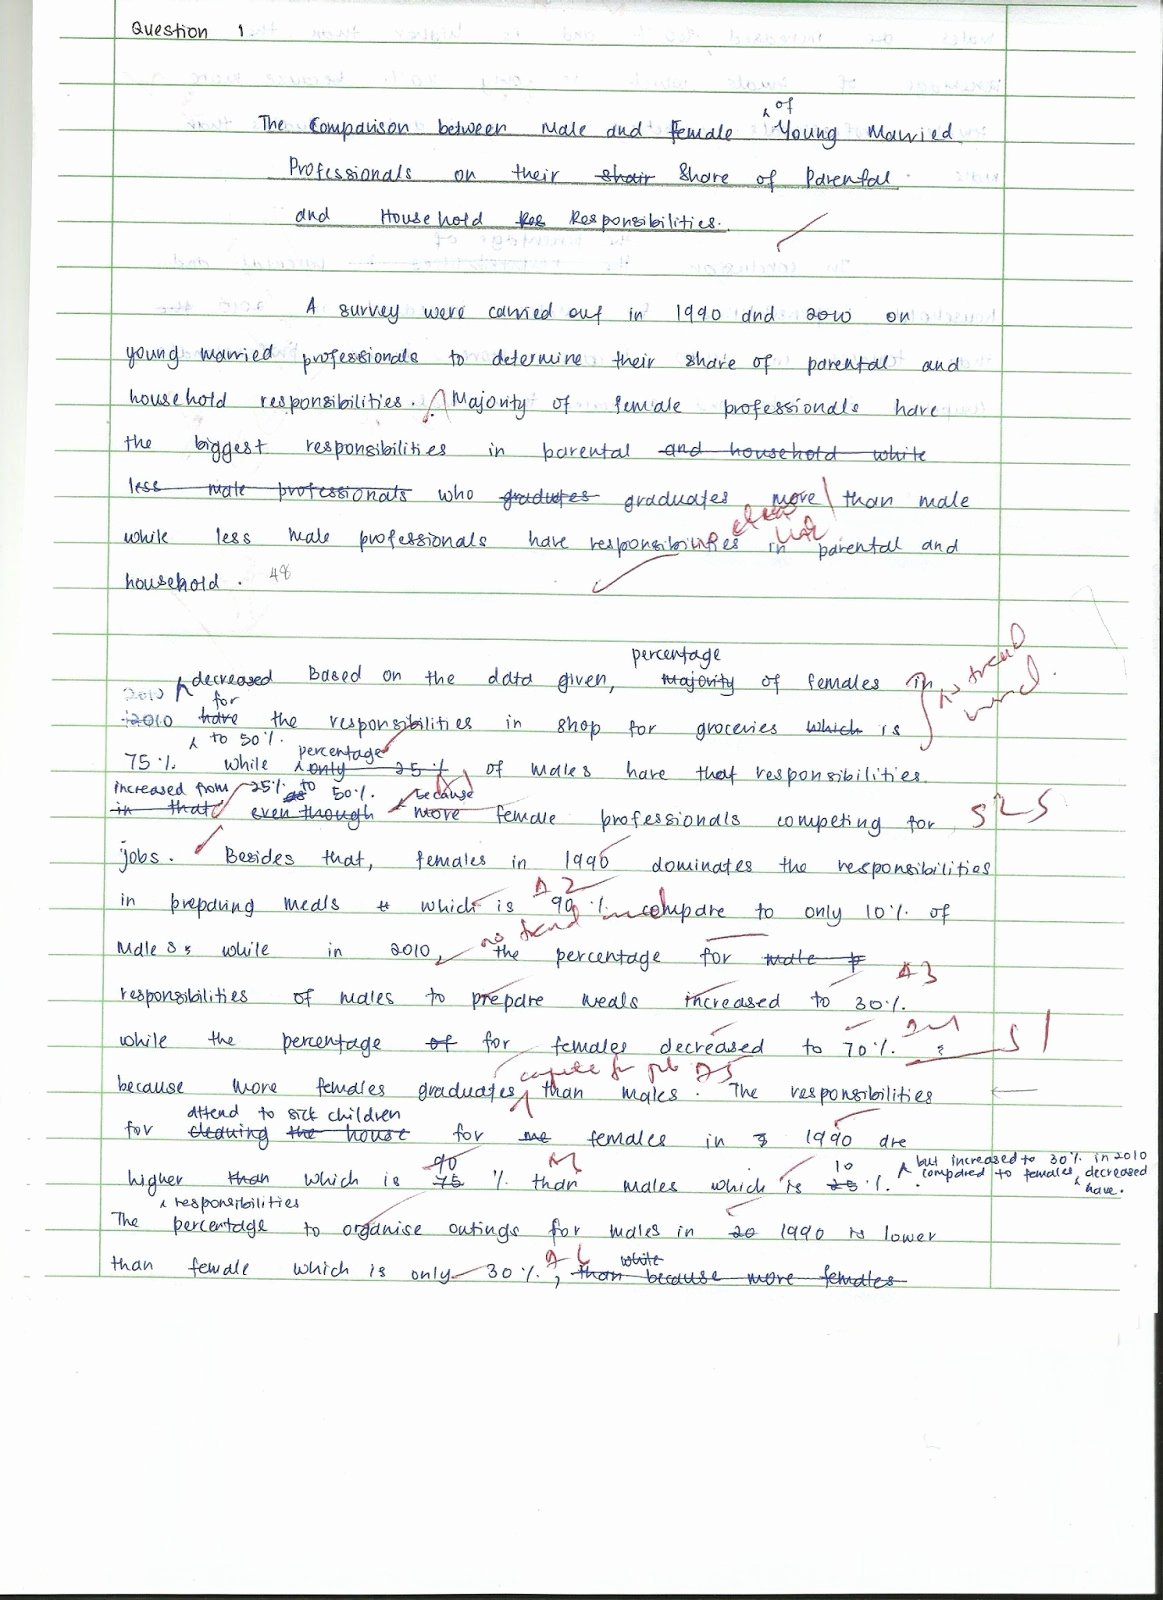 Question 1
of
The Comparison between Male and Female Young Married
Professionals on their shair Share of Parental
and Household Res Responsibilities.
A survey were carried out in 1990 and 2010 on
young married professionals to determine their share of parental and
household responsibilities. Majority of female professionals have
the biggest responsibilities in parental and household while
less male professionals who graduates graduates more than male
while less male professionals have responsibilities in parental and
household. 48
percentage
decreased Based on the data given, Majority of females in
2010 for
2010 have the responsibilities in shop for groceries which is
to 50%. percentage
75% while only 25% of males have that responsibilities
increased from 25% to 50%. because
in that even though more female professionals competing for S2 S
jobs. Besides that, females in 1990 dominates the responsibilities
A2
in preparing meals which is 90% compare to only 10% of
no trend
males, while in 2010, the percentage for male
A3
responsibilities of males to prepare meals increased to 30%.
while the percentage of for females decreased to 70% S1
compete for job A5
because more females graduates than males. The responsibilities
attend to sick children
for cleaning the house for females in 1990 are
90 10 but increased to 30% in 2010
higher than which is 75% than males which is 25%. compared to females decreased
have.
responsibilities
The percentage to organise outings for males in 20 1990 is lower
A6 while
than female which is only 30%, than because more females